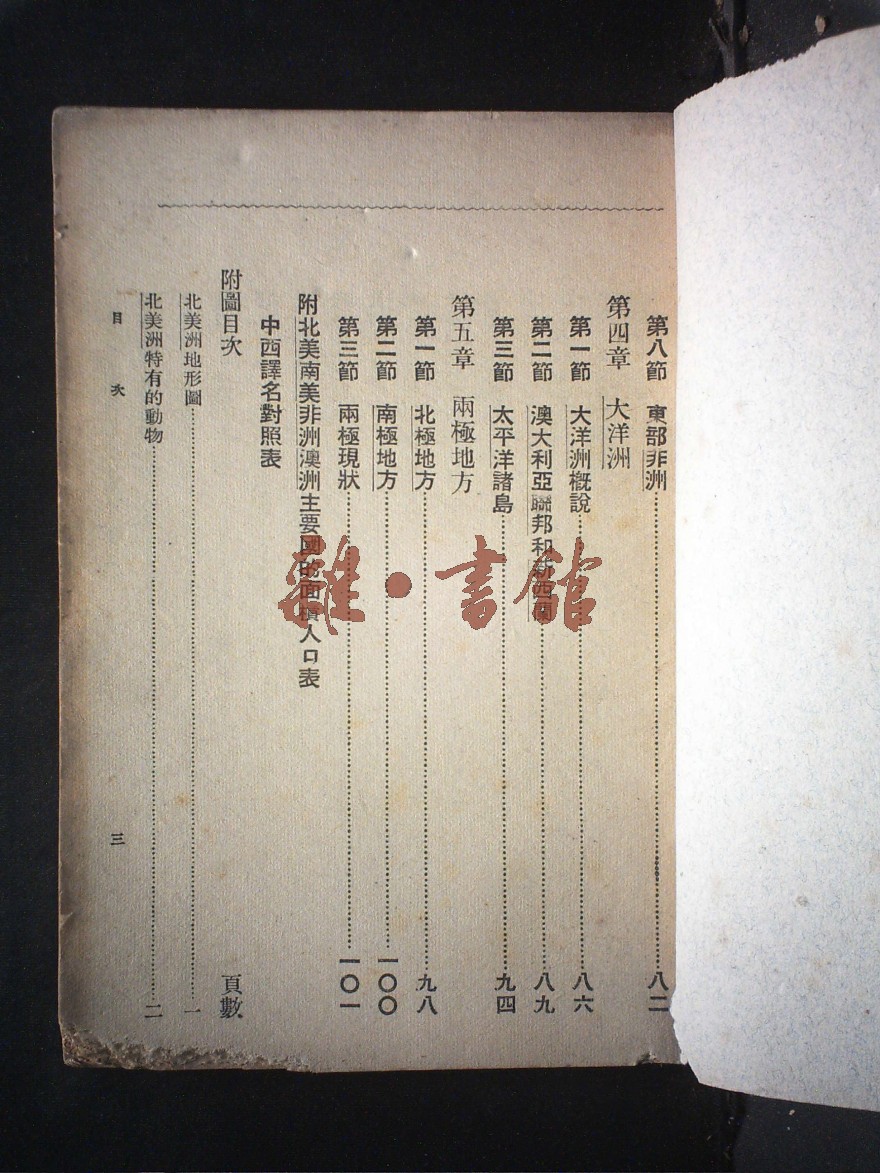 第八節　東部非洲……八二
第四章　大洋洲
第一節　大洋洲概說……八六
第二節　澳大利亞聯邦和新西蘭……八九
第三節　太平洋諸島……九四
第五章　兩極地方
第一節　北極地方……九八
第二節　南極地方……一〇〇
第三節　兩極現狀……一〇一
附北美南美非洲澳洲主要國的面積人口表
中西譯名對照表
附圖目次　頁數
北美洲地形圖……一
北美洲特有的動物……二
目次　三
雜·書館